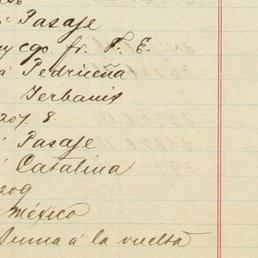 á Pasaje
y cgo. fr. F. E.
á Pedriceña
Yerbanis
207 8
á Pasaje
á Catalina
209
México
Suma á la vuelta